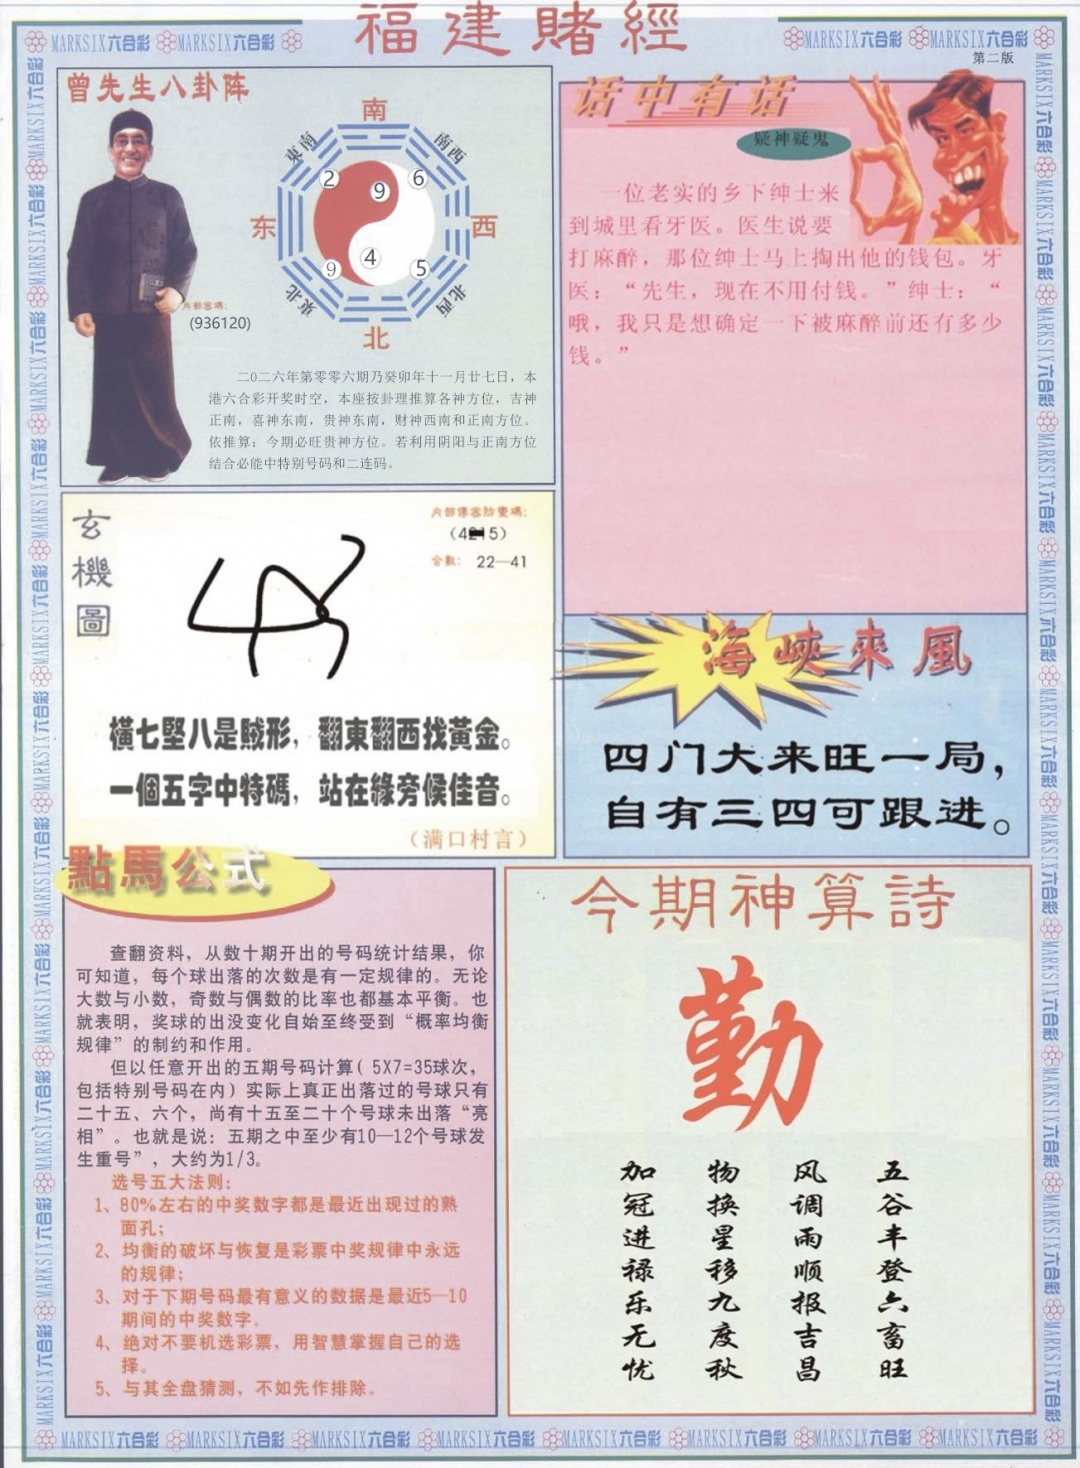 福建賭經
MARKSIX六合彩 MARKSIX六合彩
MARKSIX六合彩 MARKSIX六合彩
第二版
曾先生八卦阵
南
東南
南西
2
9
6
东
西
9
4
5
東北
北西
北
内部密碼:
(936120)
二〇二六年第零零六期乃癸卯年十一月廿七日，本
港六合彩开奖时空，本座按卦理推算各神方位，吉神
正南，喜神东南，贵神东南，财神西南和正南方位。
依推算：今期必旺贵神方位。若利用阴阳与正南方位
结合必能中特别号码和二连码。
话中有话
疑神疑鬼
一位老实的乡下绅士来
到城里看牙医。医生说要
打麻醉，那位绅士马上掏出他的钱包。牙
医：“先生，现在不用付钱。”绅士：“
哦，我只是想确定一下被麻醉前还有多少
钱。”
玄機圖
内部傳密防變碼:
合數: 22—41
橫七堅八是賊形，翻東翻西找黃金。
一個五字中特碼，站在綠旁候佳音。
（满口村言）
海峽來風
四门大来旺一局，
自有三四可跟进。
點馬公式
查翻资料，从数十期开出的号码统计结果，你
可知道，每个球出落的次数是有一定规律的。无论
大数与小数，奇数与偶数的比率也都基本平衡。也
就表明，奖球的出没变化自始至终受到“概率均衡
规律”的制约和作用。
但以任意开出的五期号码计算( 5X7=35球次，
包括特别号码在内）实际上真正出落过的号球只有
二十五、六个，尚有十五至二十个号球未出落“亮
相”。也就是说：五期之中至少有10—12个号球发
生重号”，大约为1/3。
选号五大法则：
1、80%左右的中奖数字都是最近出现过的熟
面孔；
2、均衡的破坏与恢复是彩票中奖规律中永远
的规律；
3、对于下期号码最有意义的数据是最近5—10
期间的中奖数字。
4、绝对不要机选彩票，用智慧掌握自己的选
择。
5、与其全盘猜测，不如先作排除。
今期神算詩
勤
五谷丰登六畜旺
风调雨顺报吉昌
物换星移九度秋
加冠进禄乐无忧
MARKSIX六合彩 MARKSIX六合彩 MARKSIX六合彩 MARKSIX六合彩 MARKSIX六合彩 MARKSIX六合彩 MARKSIX六合彩 MARKSIX六合彩